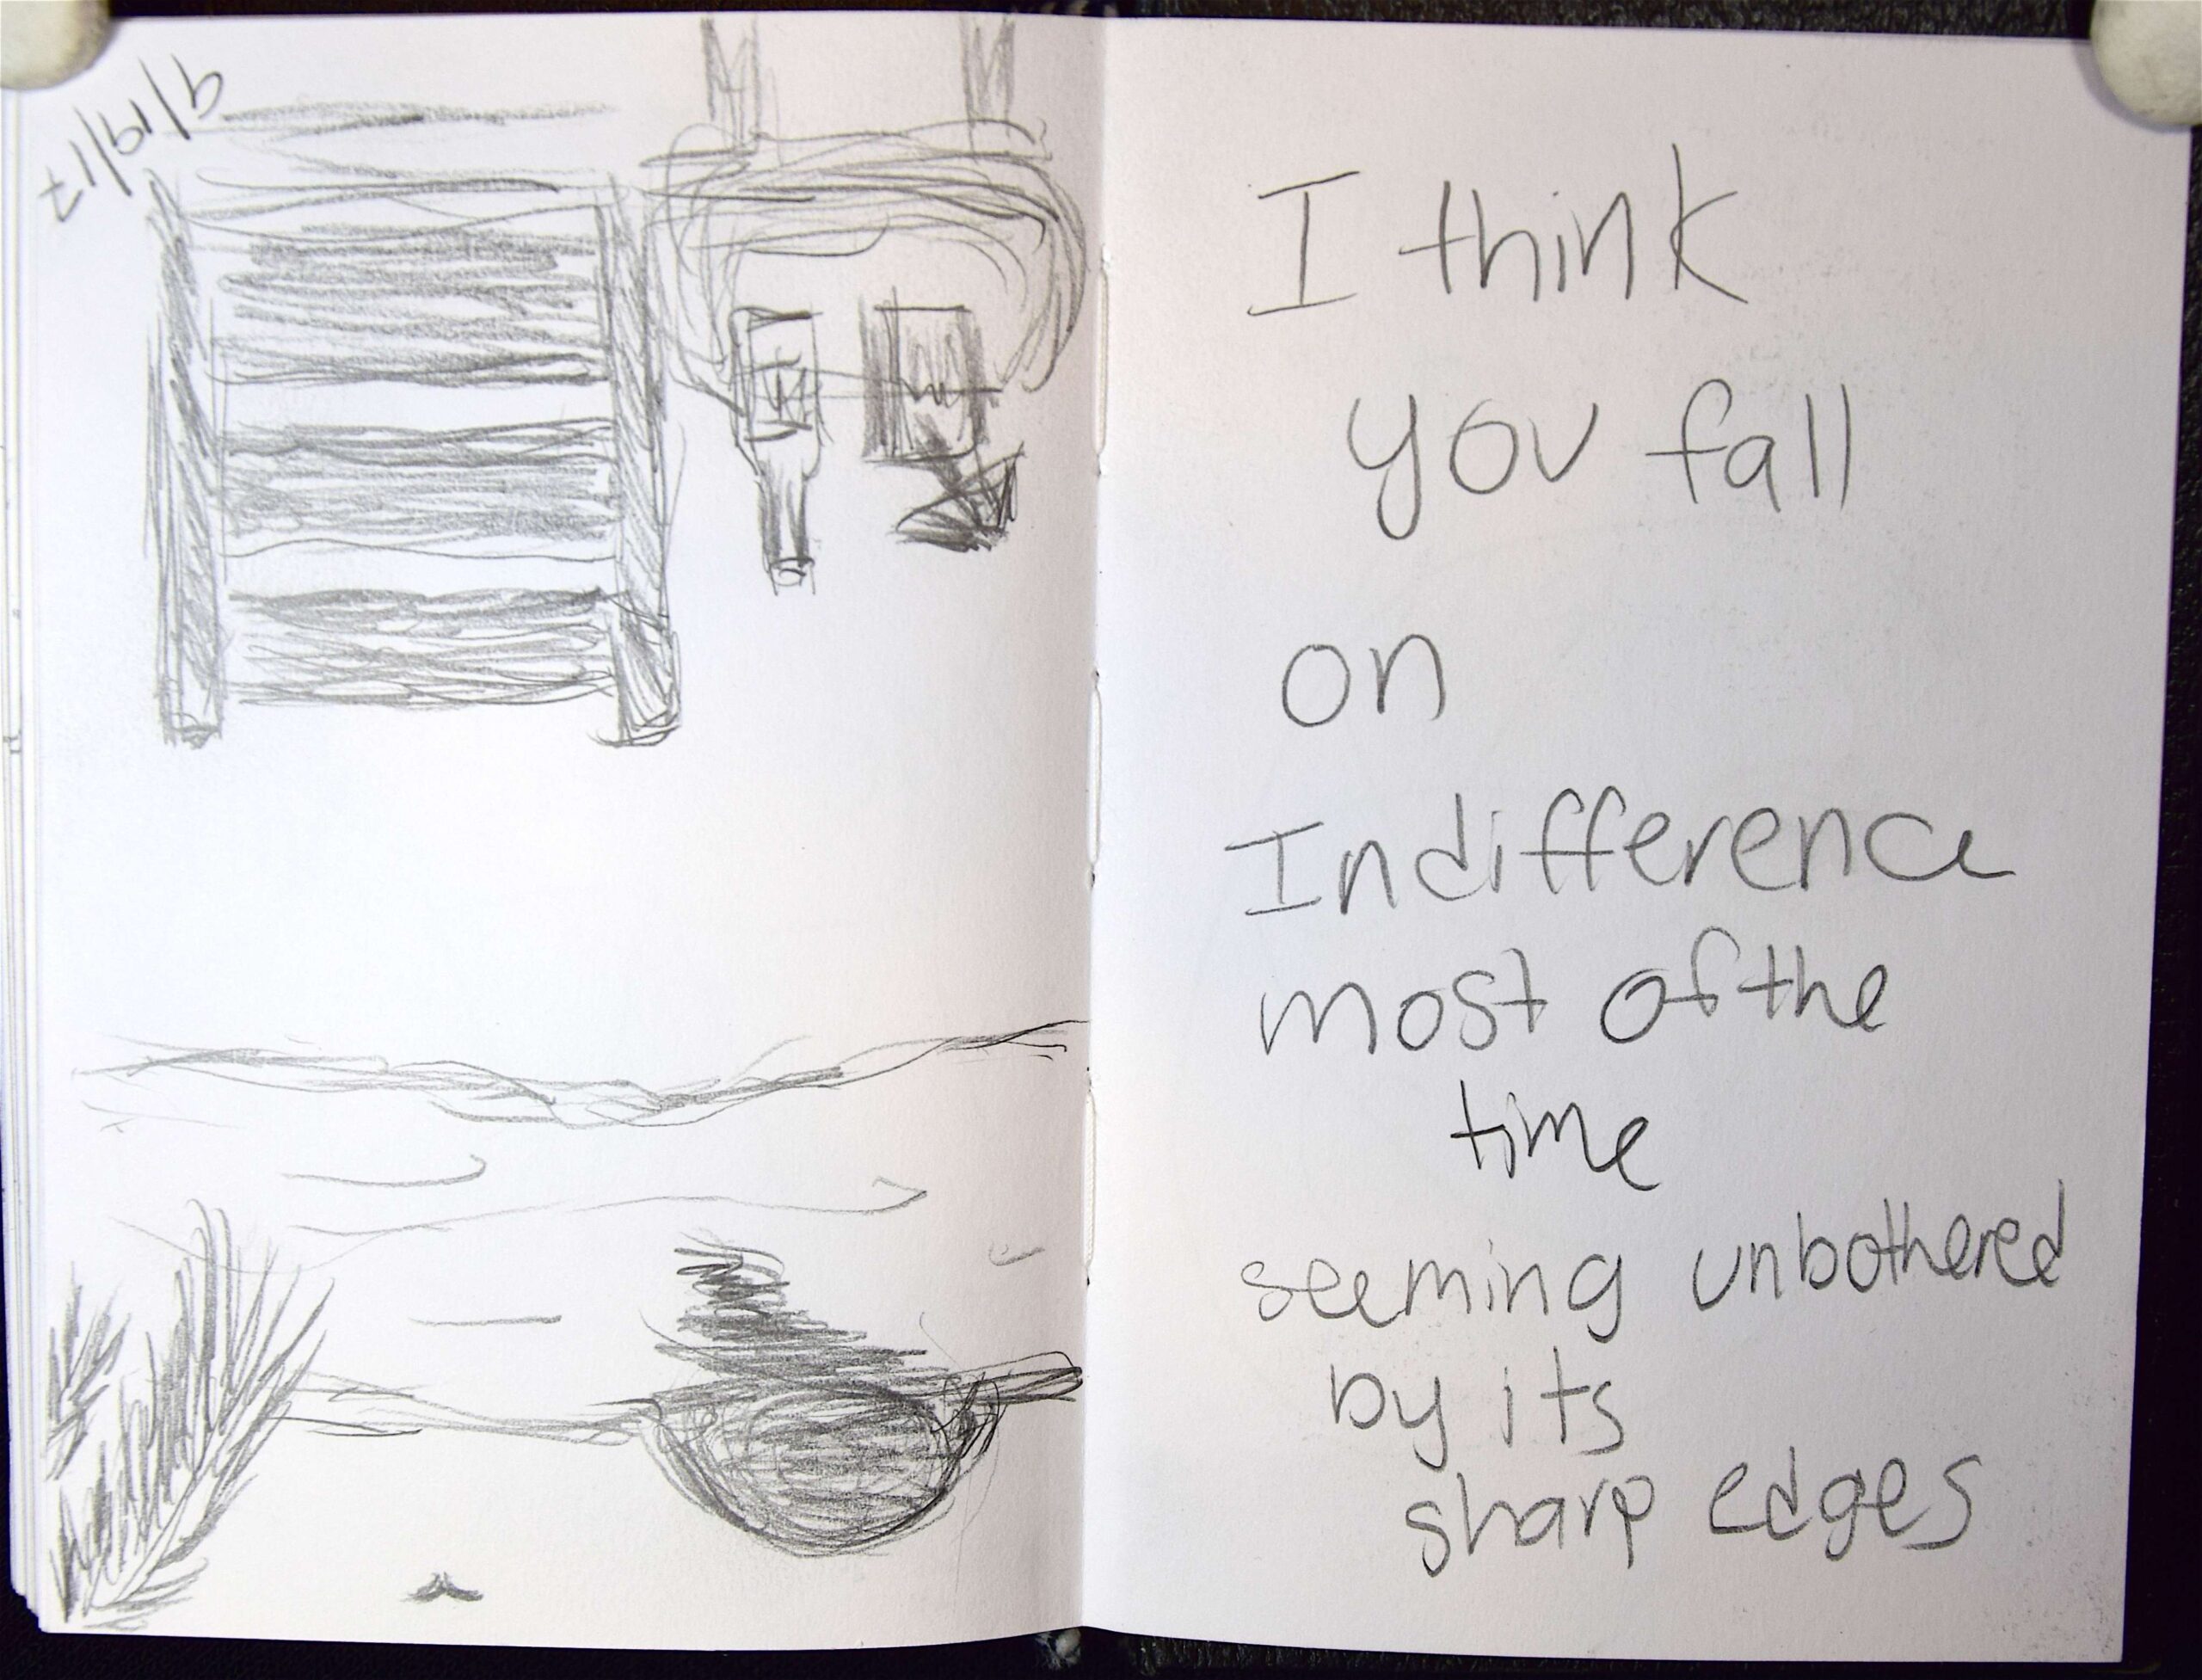 9/19/17
I think
you fall
on
Indifference
most of the
time
seeming unbothered
by its
sharp edges